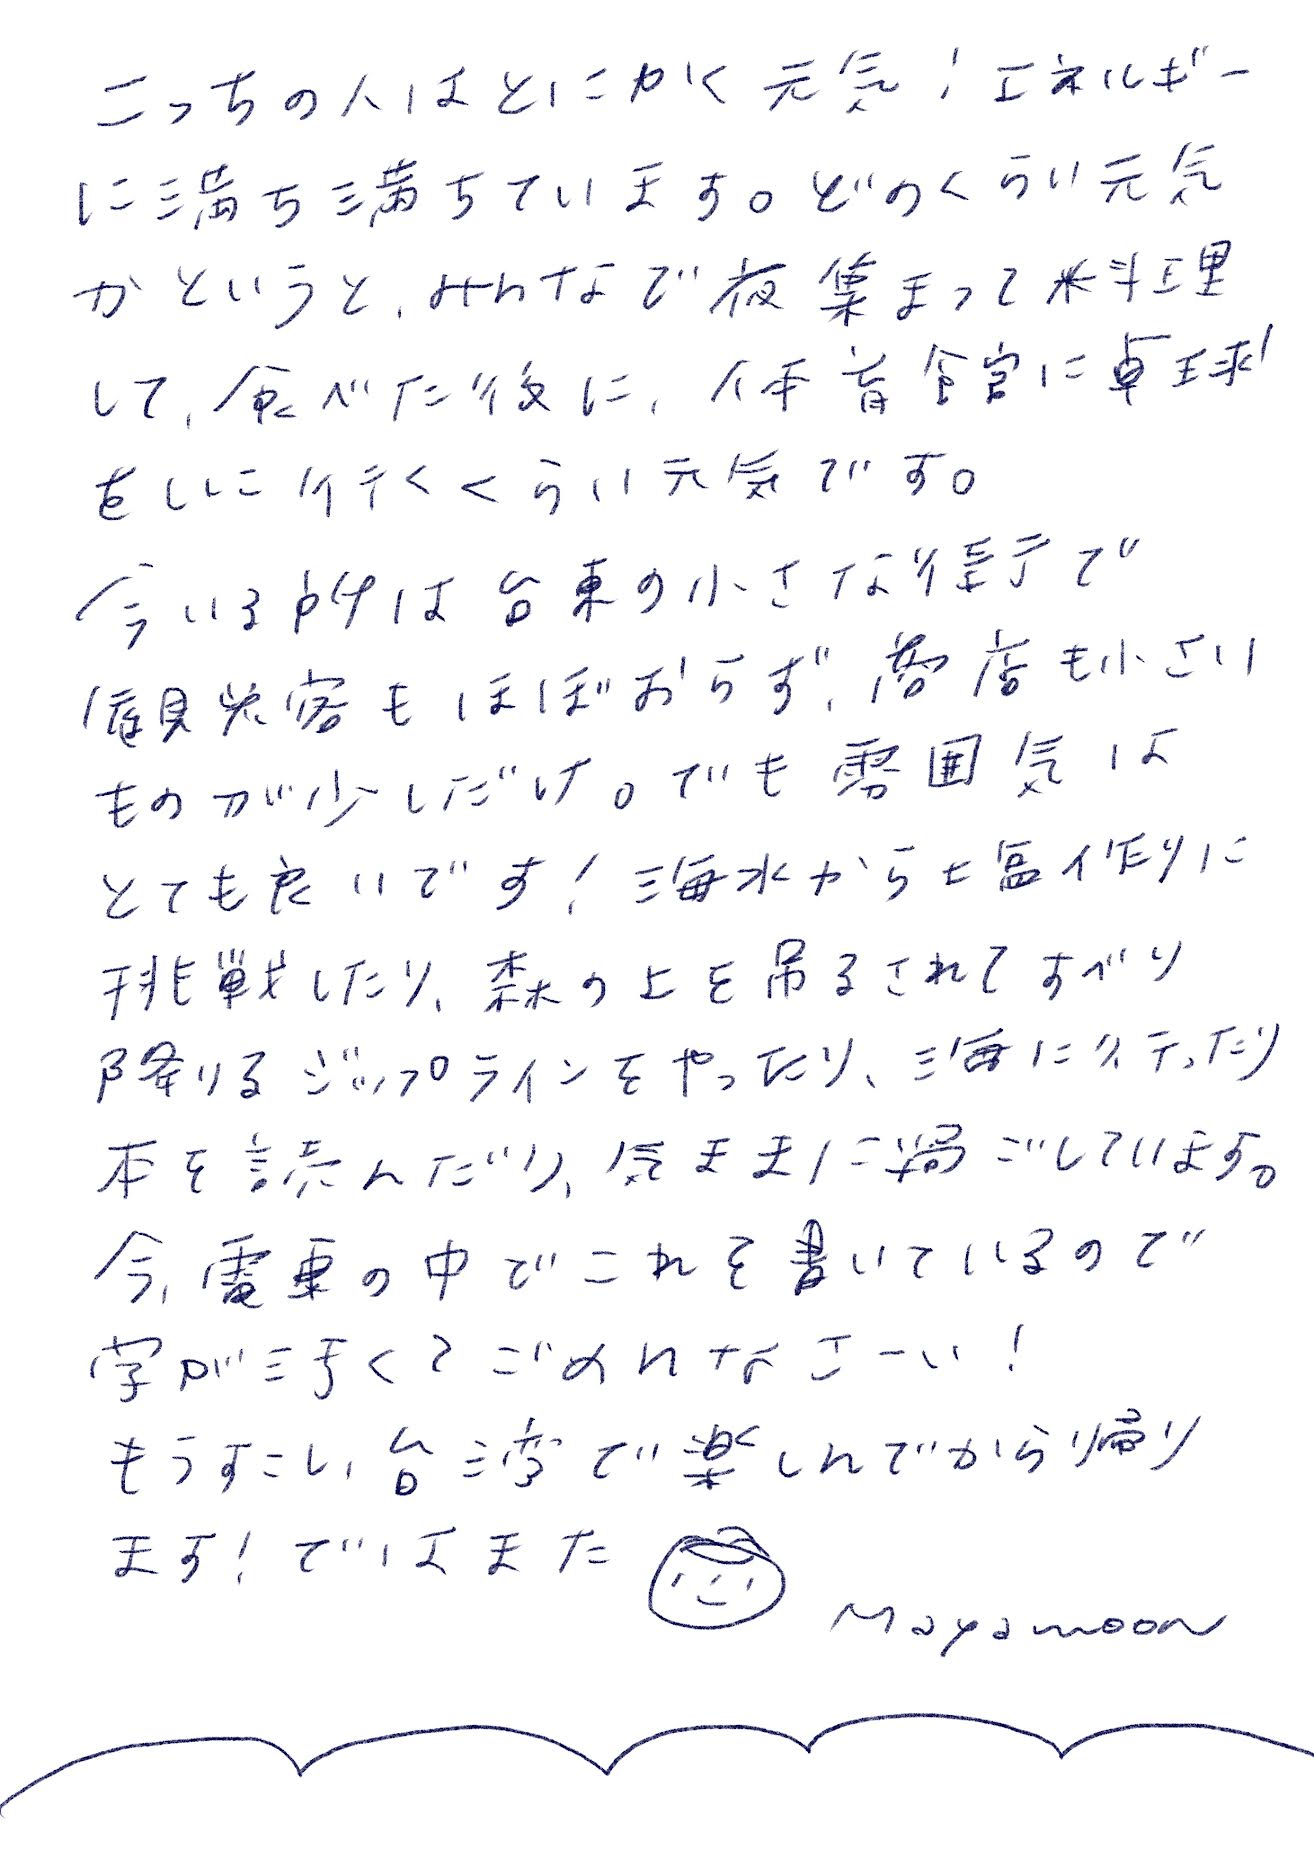 こっちの人はとにかく元気！エネルギー
に満ち満ちています。どのくらい元気
かというと、みんなで夜集まって料理
して、食べた後に、体育館に卓球
をしに行くくらい元気です。
今いる所は台東の小さな街で
観光客もほぼおらず、商店も小さい
ものが少しだけ。でも雰囲気は
とても良いです！海水から塩作りに
挑戦したり、森の上を吊るされてすべり
降りるジップラインをやったり、海に行ったり
本を読んだり、気ままに過ごしています。
今、電車の中でこれを書いているので
字が汚くてごめんなさーい！
もうすこし、台湾で楽しんでから帰り
ます！ではまた
Mayamoon